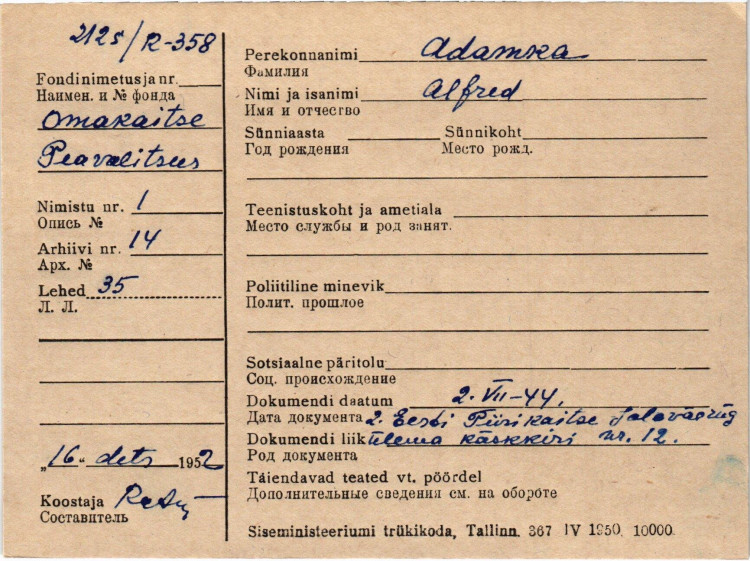 2125/R-358
Fondinimetus ja nr.
Наимен. и № фонда
Omakaitse
Peavalitsus
Nimistu nr. 1
Опись №
Arhiivi nr. 14
Арх. №
Lehed 35
Л. Л.
"16." dets 1952
Koostaja
Составитель
Perekonnanimi Adamka
Фамилия
Nimi ja isanimi Alfred
Имя и отчество
Sünniaasta Sünnikoht
Год рождения Место рожд.
Teenistuskoht ja ametiala
Место службы и род занят.
Poliitiline minevik
Полит. прошлое
Sotsiaalne päritolu
Соц. происхождение
Dokumendi daatum 2. VII-44.
Дата документа 2. Eesti Piirikaitse Jalaväerüg
Dokumendi liik ülema käskkiri nr. 12.
Род документа
Täiendavad teated vt. pöördel
Дополнительные сведения см. на обороте
Siseministeeriumi trükikoda, Tallinn. 367 IV 1950. 10000.